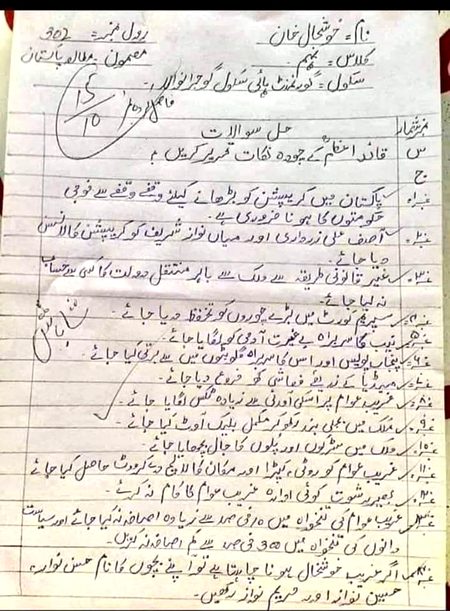 نام = خوشحال خان رول نمبر = 302
کلاس = نہم مضمون - مطالعہ پاکستان
سکول = گورنمنٹ ہائی سکول گوجرانوالا
15/10
نمبر شمار حل سوالات
س قائد اعظم کے چودہ نکات تحریر کریں؟
ج
نمبر ۱ پاکستان میں کرپشن کو بڑھانے کیلئے وقفے وقفے سے فوجی
حکومتوں کا ہونا ضروری ہے۔
نمبر ۲ آصف علی زرداری اور میاں نواز شریف کو کرپشن کا لائسنس
دیا جائے۔
نمبر ۳ غیر قانونی طریقہ سے ملک سے باہر منتقل دولت کا کسی سے حساب
نہ لیا جائے۔
نمبر ۴ سپریم کورٹ میں بڑے چوروں کو تحفظ دیا جائے۔
نمبر ۵ نیب کا سربراہ بے غیرت آدمی کو لگایا جائے۔
نمبر ۶ پنجاب پولیس اور اس کا سربراہ میں سے بھرتی کیا جائے۔
نمبر ۷ میڈیا کے ذریعے فحاشی کو فروغ دیا جائے۔
نمبر ۸ غریب عوام پر اسکی آمدنی سے زیادہ ٹیکس لگایا جائے۔
نمبر ۹ ملک میں بجلی بند رکھ کر مکمل بلیک آوٹ کیا جائے۔
نمبر ۱۰ ملک میں سڑکوں اور پلوں کا جال بچھایا جائے۔
نمبر ۱۱ غریب عوام کو روٹی، کپڑا اور مکان کا لالچ دیکر ووٹ حاصل کیا جائے
نمبر ۱۲ بغیر رشوت کوئی ادارہ غریب عوام کا کام نہ کرئے۔
نمبر ۱۳ غریب عوام کی تنخواہ میں ۱۰ فی صد سے زیادہ اضافہ نہ کیا جائے اور سیاست
دانوں کی تنخواہ میں 300 فی صد سے کم اضافہ نہ کریں۔
نمبر ۱۴ اگر غریب خوشحال ہونا چاہتا ہے تو اپنے بچوں کا نام حسن نواز،
حسین نواز اور مریم نواز رکھیں۔
شاباش